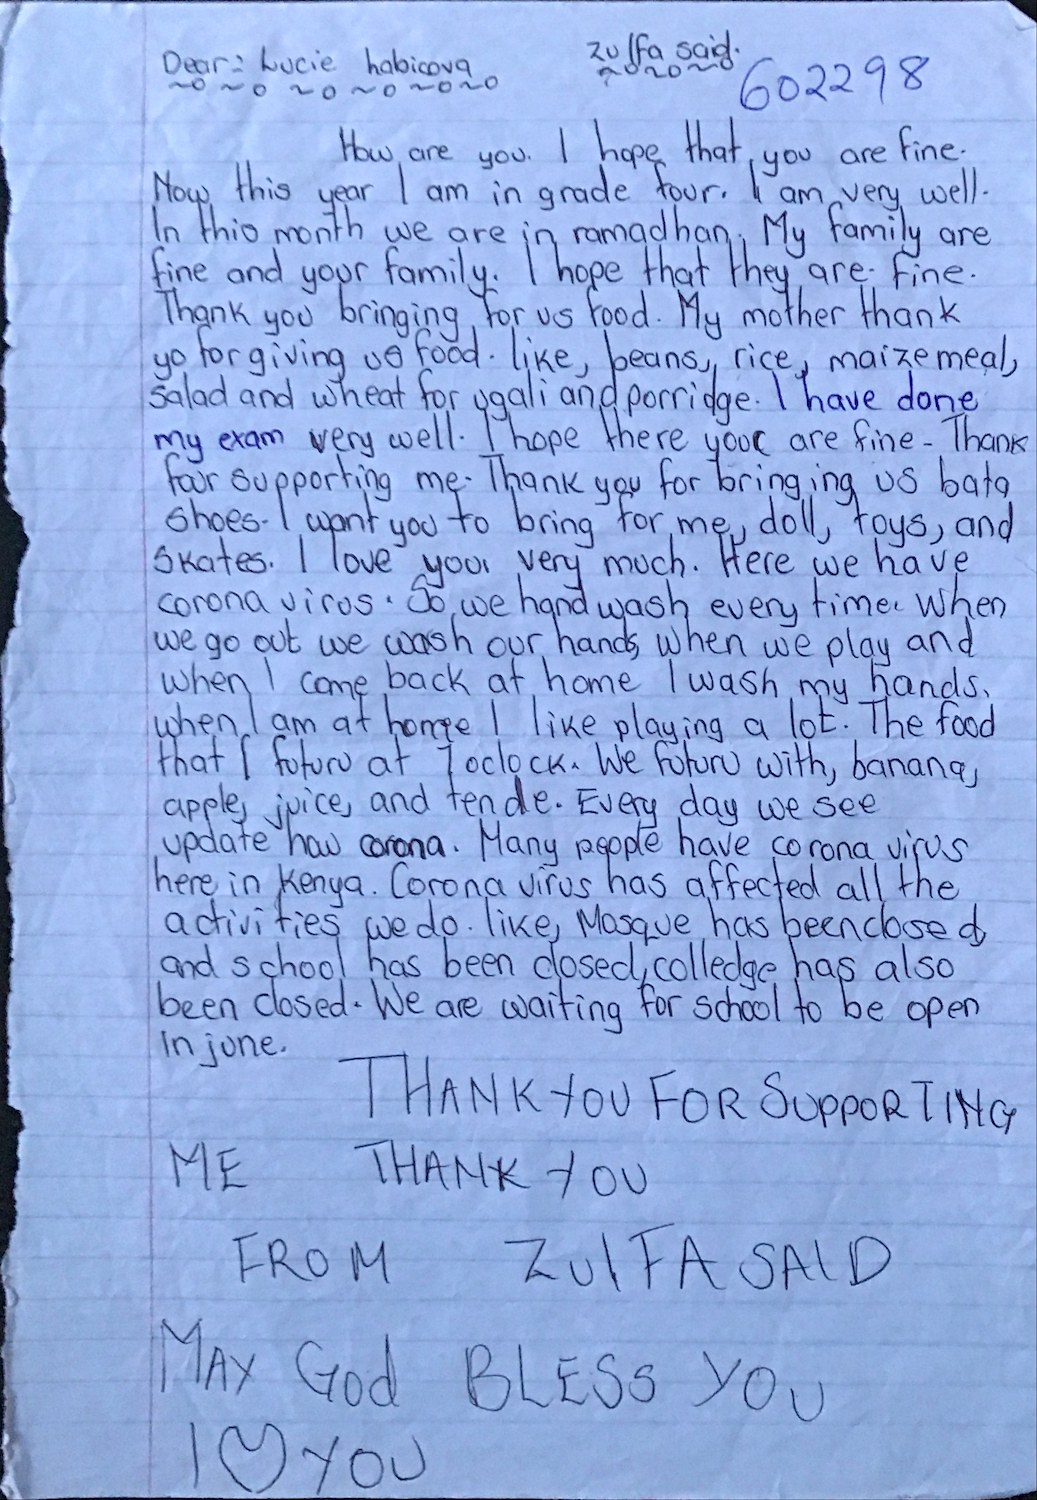 Dear: Lucie habicova
Zulfa said.
602298
How are you. I hope that you are fine.
Now this year I am in grade four. I am very well.
In this month we are in ramadhan. My family are
fine and your family. I hope that they are fine.
Thank you bringing for us food. My mother thank
yo for giving us food. like, beans, rice, maizemeal,
salad and wheat for ugali and porridge. I have done
my exam very well. I hope there your are fine - Thank
four supporting me. Thank you for bringing us bata
shoes. I want you to bring for me, doll, toys, and
skates. I love your very much. Here we have
corona virus. So we hand wash every time. When
we go out we wash our hands when we play and
when I come back at home I wash my hands.
when I am at home I like playing a lot. The food
that I futuru at 7oclock. We futuru with, banana,
apple, juice, and tende. Every day we see
update how corona. Many people have corona virus
here in Kenya. Corona virus has affected all the
activities we do. like, Mosque has been closed
and school has been closed, colledge has also
been closed. We are waiting for school to be open
in june.
THANK YOU FOR SUPPORTING
ME THANK YOU
FROM ZULFA SAID
MAY GOd BLESS YOU
I ♡ YOU